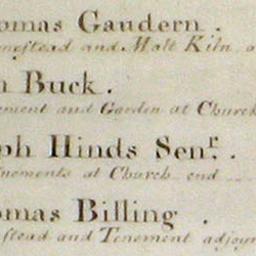 omas Gaudern.
mestead and Malt Kiln a
n Buck.
ement and Garden at Church
ph Hinds Senr.
nements at Church end
omas Billing.
stead and Tenement adjoyn